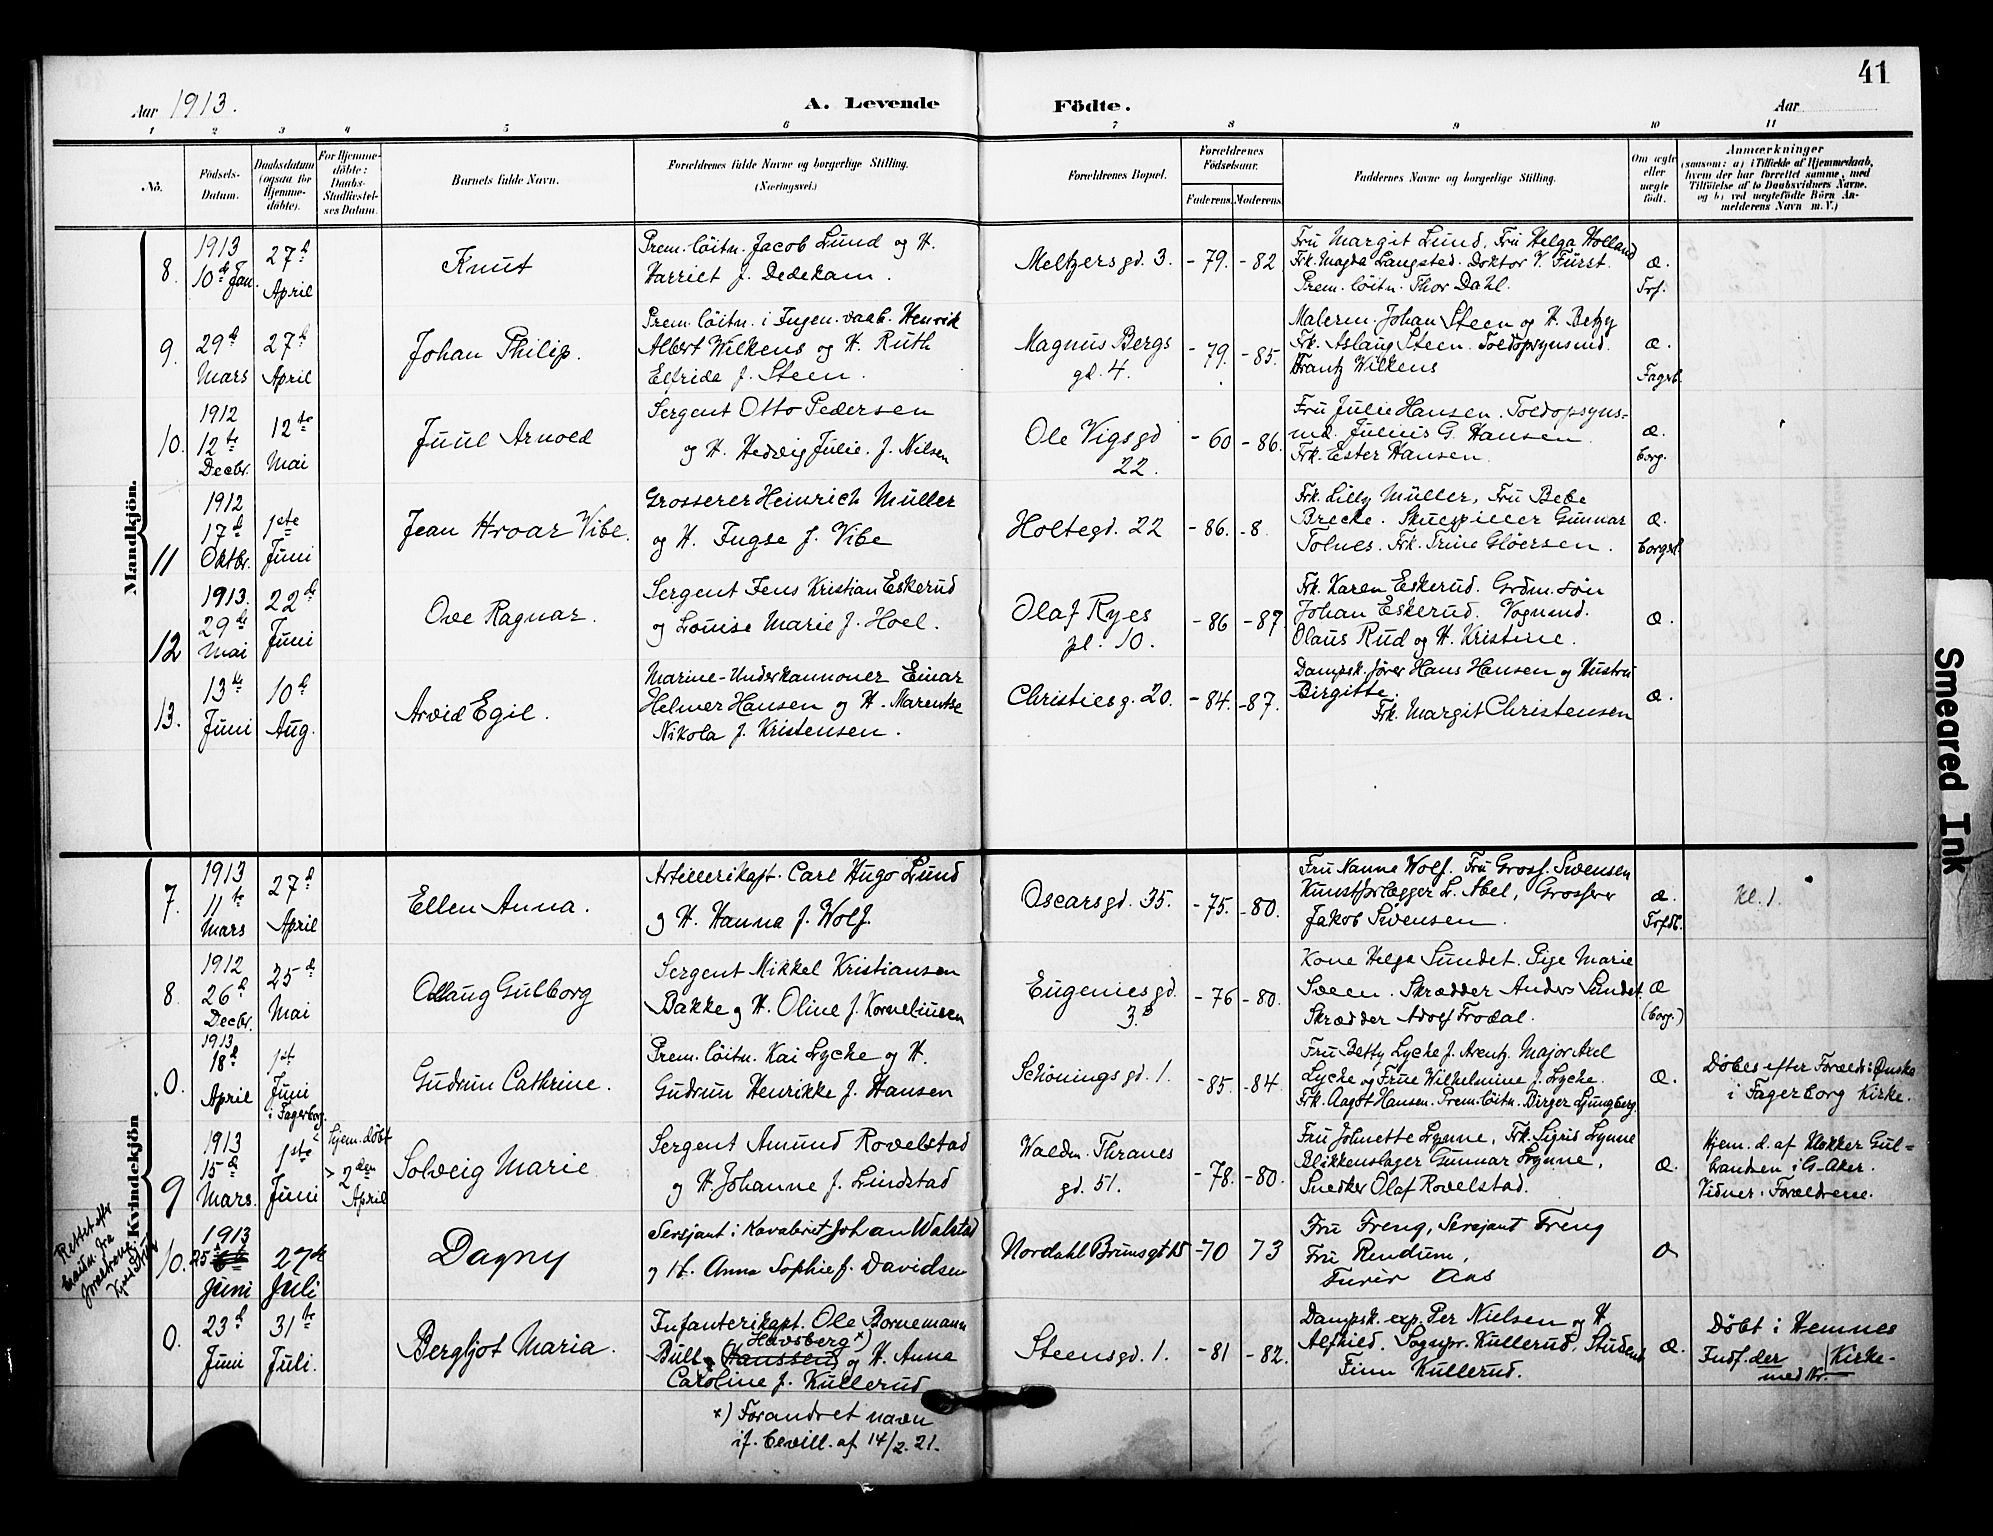 41
Aar 1913.
A. Levende
Födte.
Aar
1 2 3 4 5 6 7 8 9 10 11
No.
Födsels-
Datum.
Daabsdatum
(ogsaa for
Hjemme-
döbte).
For Hjemme-
döbte:
Daabs-
Stadfæstel-
ses Datum.
Barnets fulde Navn.
Forældrenes fulde Navne og borgerlige Stilling.
(Næringsvei.)
Forældrenes Bopæl.
Forældrenes
Födselsaar.
Faderens.
Moderens.
Faddernes Navne og borgerlige Stilling.
Om ægte
eller
uægte
födt.
Anmærkninger
(saasom: a) i Tilfælde af Hjemmedaab,
hvem der har forrettet samme, med
Tilföielse af to Daabsvidners Navne,
og b) ved uægtefödte Börn An-
melderens Navn m. V.)
Mandkjön.
8.
1913
10de Jan.
27d
April
Knut
Prem. löitn. Jacob Lund og H.
Harriet f. Dedekam.
Meltzersgd. 3.
-79. -82
Fru Margit Lund, Fru Helga Holland
Frk. Magda Langsted. Doktor V. Fürst.
Prem. löitn. Thor Dahl.
æ.
Frf.
9.
29d
Mars
27d
April
Johan Philip.
Prem. löitn. i Ingen. vaab. Henrik
Albert Wilkens og H. Ruth
Elfride f. Steen.
Magnus Bergs
gd. 4.
-79. -85.
Malerm. Johan Steen og H. Betzy
Frk. Aslaug Steen. Toldopsynsmd.
Frantz Wilkens
æ.
Fagerb.
10.
1912
12te
Decbr.
12te
Mai
Juul Arnold
Sergent Otto Pedersen
og H. Hedvig Julie f. Nilsen
Ole Vigsgd
22.
-60 -86.
Fru Julie Hansen. Toldopsyns-
md. Julius G. Hansen.
Frk. Ester Hansen.
æ.
borg.
11
1912
17d
Oktbr.
1ste
Juni
Jean Hroar Vibe.
Grosserer Heinrich Müller
og H. Ingse f. Vibe
Holtegd. 22
-86. -8.
Frk. Lilly Müller, Fru Bebe
Brecke. Skuespiller Gunnar
Tolnes. Frk. Trine Gløersen.
æ.
12
1913.
29de
Mai
22d
Juni
Ove Ragnar.
Sergent Jens Kristian Eskerud
og Louise Marie f. Hoel.
Olaf Ryes
pl. 10.
-86 -87
Frk. Karen Eskerud. Grdm. søn
Johan Eskerud. Vognmd.
Olaus Rud og H. Kristine.
æ.
13.
13de
Juni
10d
Aug.
Arvid Egil.
Marine-Underkannoner Einar
Helmer Hansen og H. Marentse
Nikola f. Kristensen.
Christiesg. 20.
-84. -87.
Dampsk. fører Hans Hansen og Hustru
Birgitte.
Frk. Margit Christensen
æ.
Kvindekjön
7.
1913
11te
Mars
27d
April
Ellen Anna.
Artillerikapt. Carl Hugo Lund
og H. Hanna f. Wolf.
Oscarsgd. 35.
-75. -80.
Fru Nanna Wolf. Fru Gross. Svensen
Kunstforlægger L. Abel, Grosserer
Jakob Svensen.
æ.
Kl. 1.
8.
1912
26d
Decbr.
25d
Mai
Ollaug Gulborg
Sergent Mikkel Kristiansen
Bakke og H. Oline f. Korneliusen
Eugeniesgd.
3.b
-76 -80.
Kone Helga Sundet. Pige Marie
Sveen. Skrædder Anders Sundet.
Skrædder Adolf Frodal.
æ
(borg.)
0.
1913
18d
April
1ste
Juni
i Fagerborg.
Gudrun Cathrine.
Prem. löitn. Kai Lycke og H.
Gudrun Henrikke f. Hansen
Schöningsgd. 1.
-85. -84.
Fru Betty Lycke f. Arentz. Major Axel
Lycke og Frue Wilhelmine f. Lycke.
Frk. Aagot Hansen. Prem. löitn. Birger Ljungberg.
æ.
Döbes efter Foreldr: Ønske
i Fagerborg Kirke.
9
1913
15d
Mars.
1ste
Juni
hjem. döbt
2den
April
Solveig Marie
Sergent Amund Rovelstad
og H Johanne f. Lindstad
Waldm. Thranes
gd. 51.
-78. -80.
Fru Johnette Lynne, Frk. Sigris Lynne
Blikkenslager Gunnar Lynne,
Snedker Olaf Rovelstad.
æ.
Hjem. d. af Klokker Gul-
brandsen i G-Aker.
Vidner: Forældrene.
10.
1913
25
Juni
27de
Juli
Dagny
Sersjant i Kavaleriet Johan Walstad
og H. Anna Sophie f. Davidsen
Nordahl Brunsgt 15
-70 73
Fru Freng, Sersjant Freng
Fru Rendum,
Furér Aas
0.
23d
Juni
31te
Juli.
Bergljot Maria.
Infanterikapt. Ole Bornemann
Havsberg x)
Bull (Hanssen) og H. Anne
Caroline f. Kullerud
Steensgd. 1.
-81 -82.
Dampsk. exp. Per Nielsen og H.
Alfhild. Sognpr. Kullerud. Student
Finn Kullerud.
æ.
Döbt i Hemnes
Kirke-
Indf. der
med Nr.
x) Forandret navn
if. bevill. af 14/2. 21.
Rettet efter
Smeared Ink